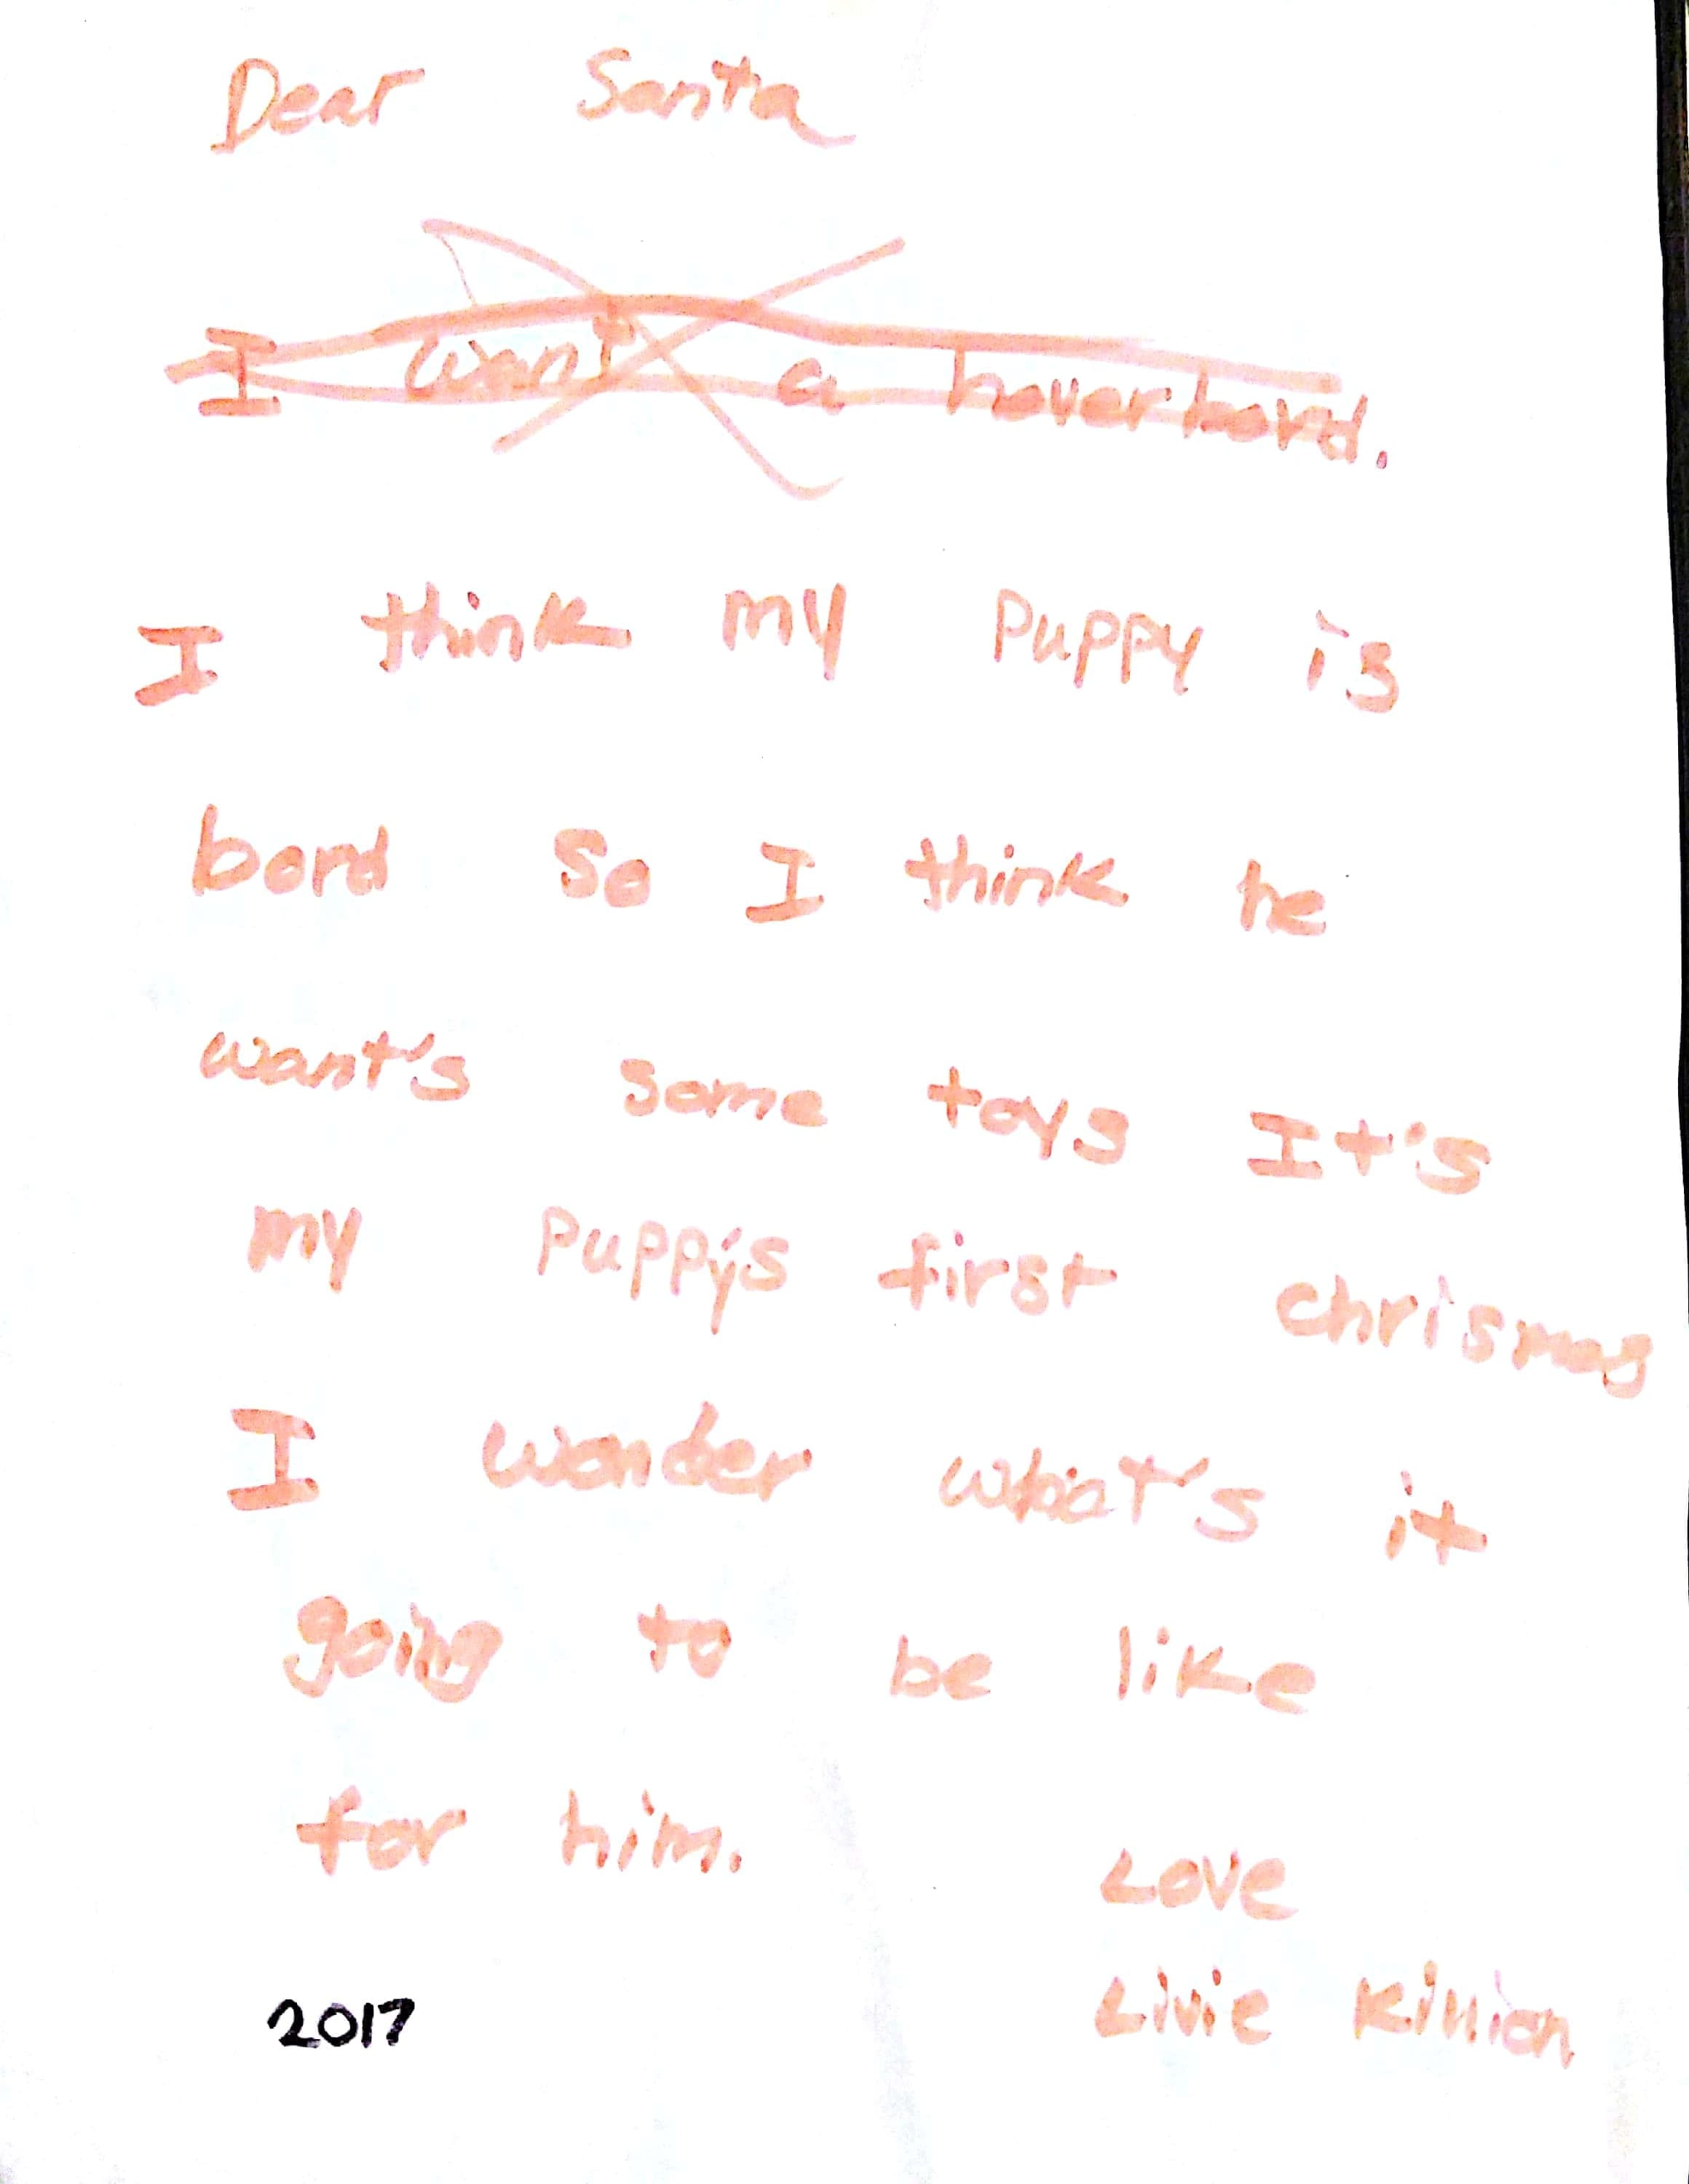 Dear Santa
I want a hoverbord.
I think my puppy is
bord so I think he
want's some toys It's
my puppy's first chrismas
I wonder what's it
going to be like
for him.
Love
Livie Killion
2017